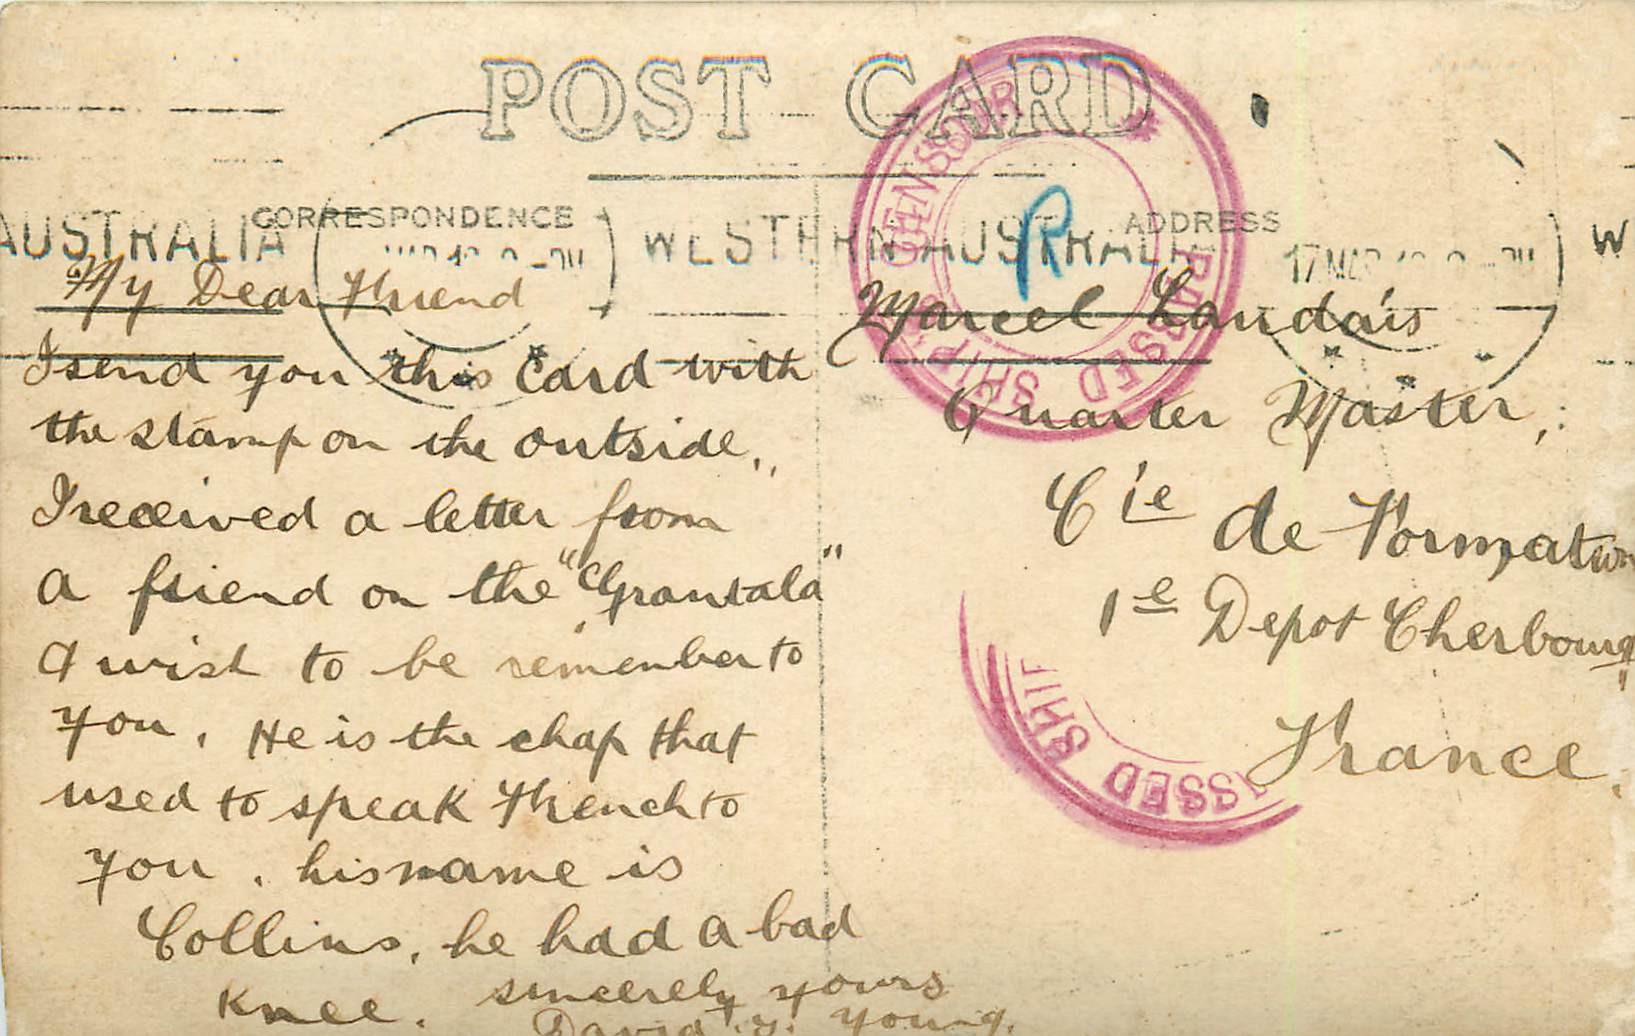 POST CARD
CORRESPONDENCE
ADDRESS
AUSTRALIA
WESTERN AUSTRALIA
17 MAR
W
PASSED SHIP'S CENSSOR
R
My Dear Friend
I send you this Card with
the stamp on the outside,,
I received a letter from
a friend on the "Grantala"
& wish to be remember to
you. He is the chap that
used to speak French to
you. his name is
Collins, he had a bad
Knee. sincerely yours
David. Young.
Marcel Landais
Quarter Master,:
Cie de Formation
1e Depot Cherbourg
France.
SSED SHI